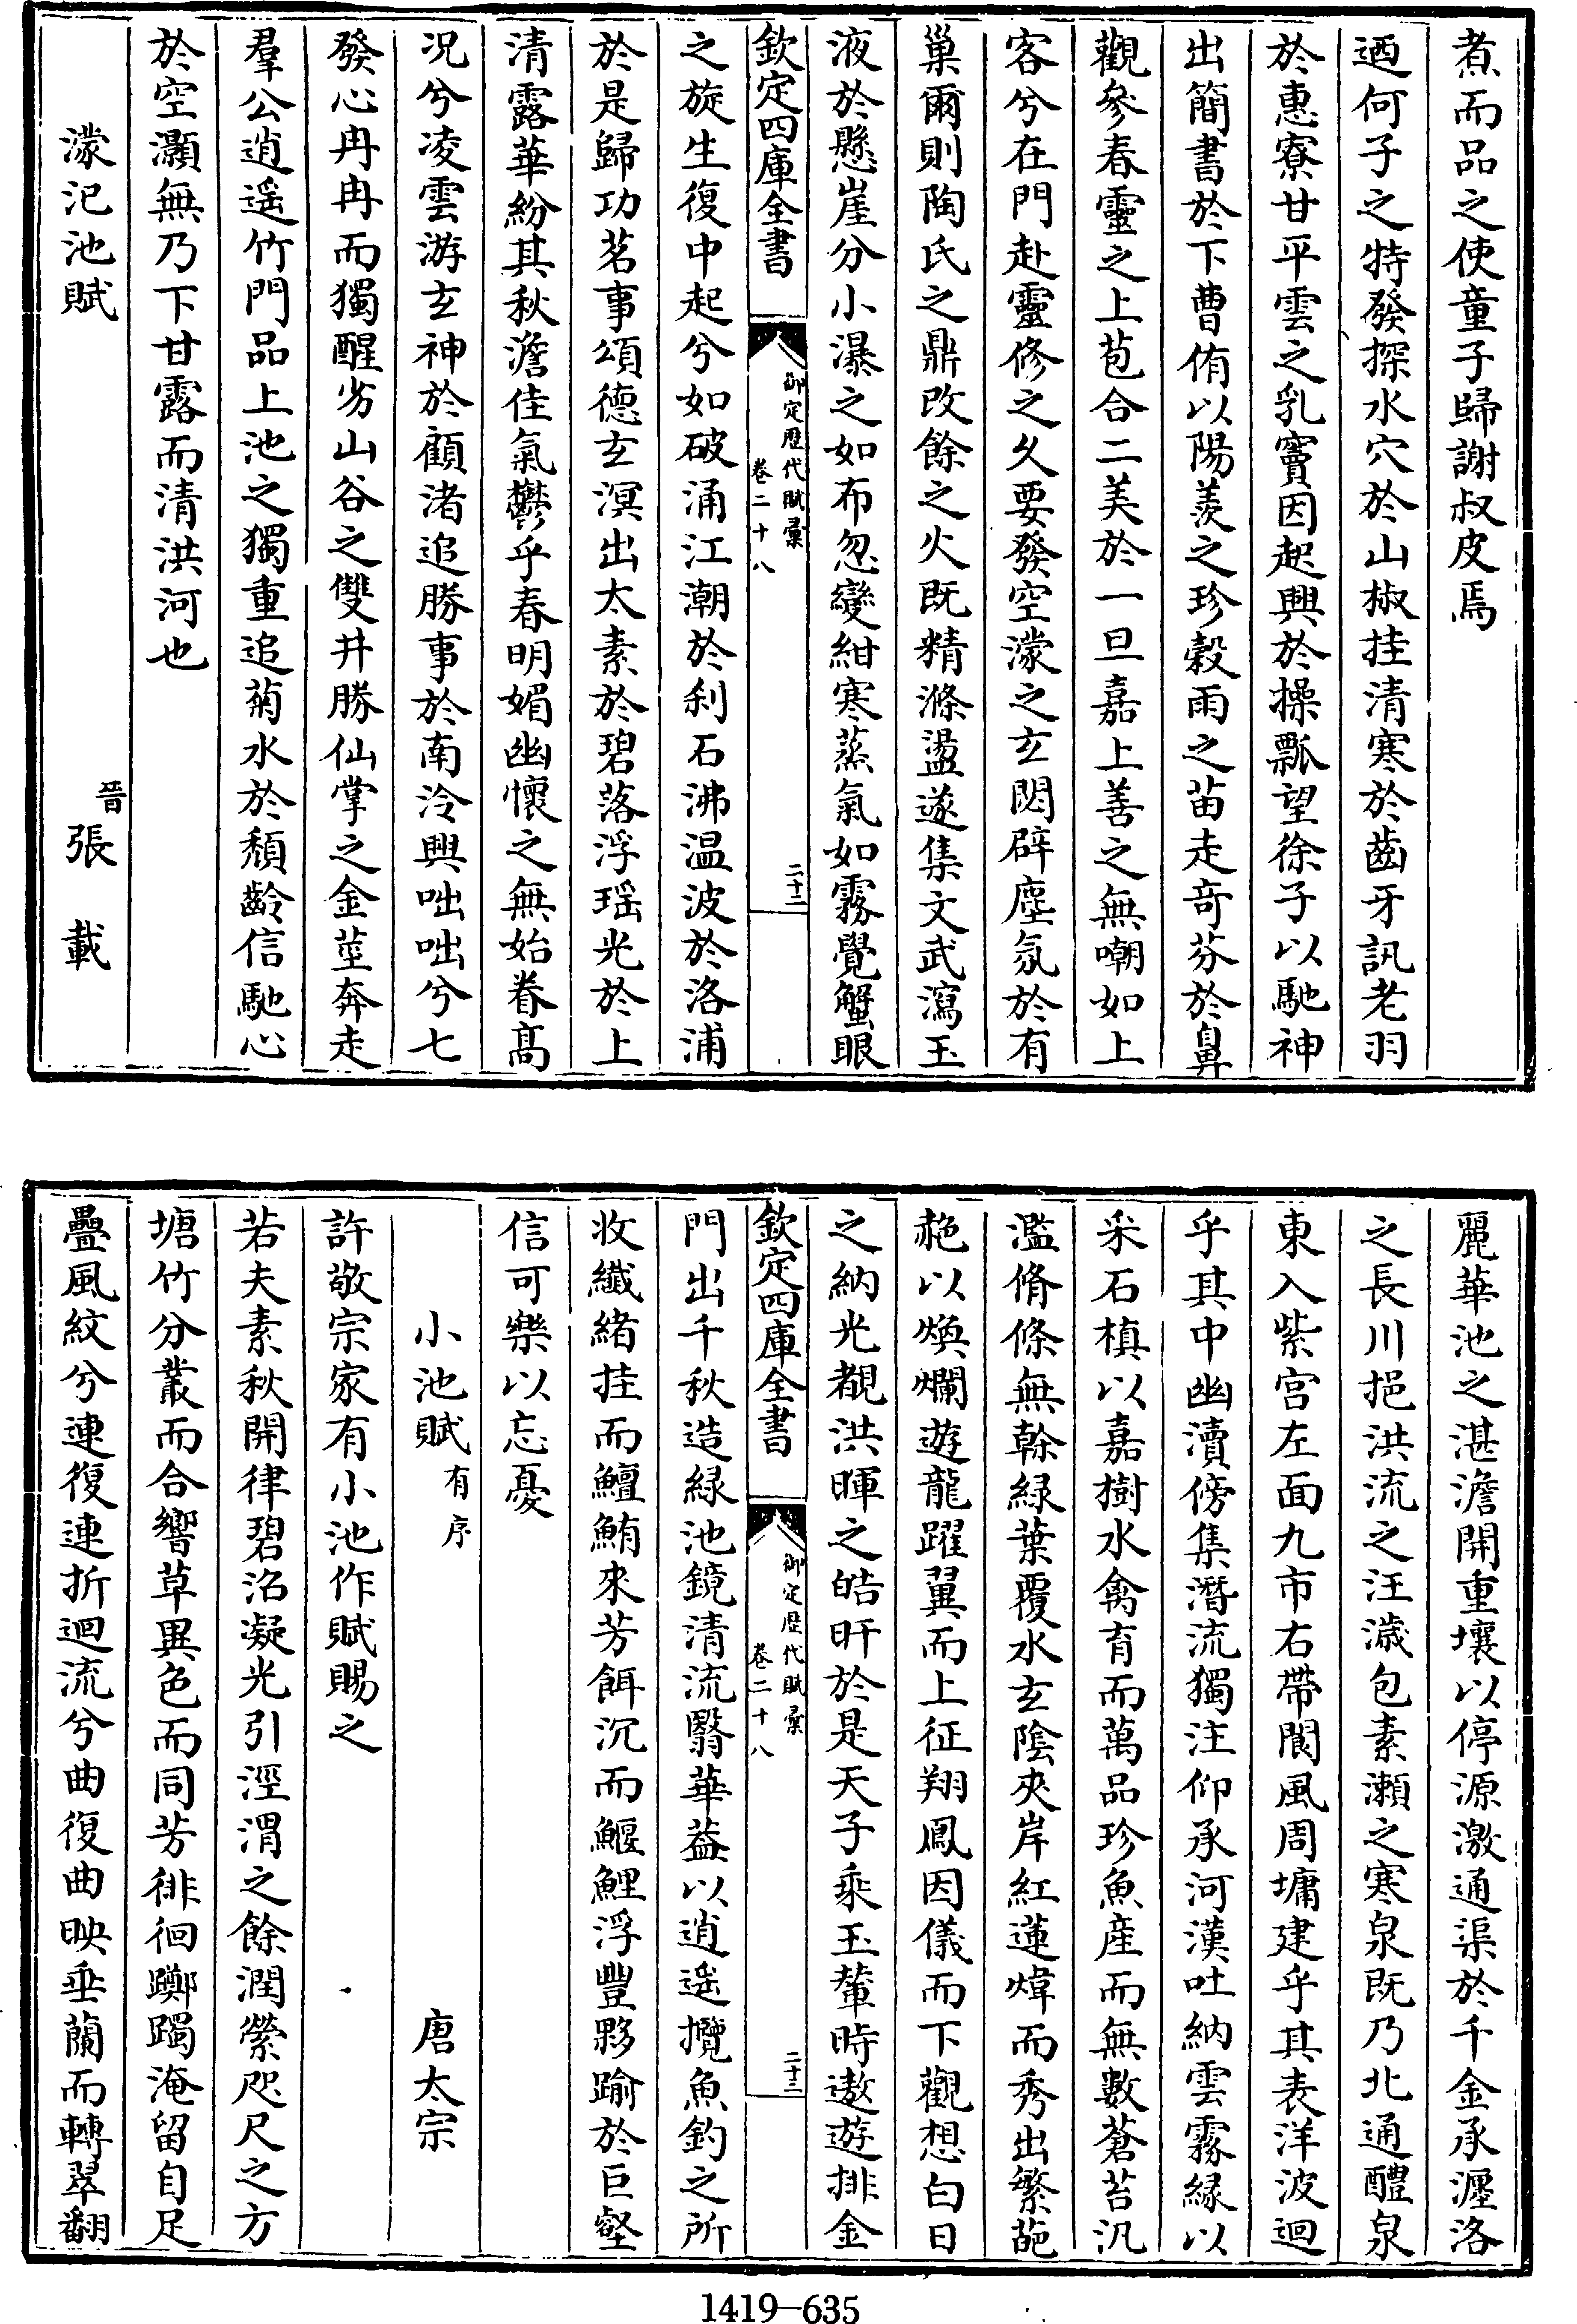 煮而品之使童子歸謝叔皮焉
迺何子之特發探水穴於山椒挂清寒於齒牙訊老羽
於惠寮甘平雲之乳竇因起興於操瓢望徐子以馳神
出簡書於下曹侑以陽羨之珍榖雨之苗走竒芬於鼻
觀參春靈之上苞合二美於一旦嘉上善之無嘲如上
客兮在門赴靈修之久要發空濛之玄閟辟塵氛於有
巢爾則陶氏之鼎改餘之火既精滌盪遂集文武瀉玉
液於懸崖分小瀑之如布忽變紺寒蒸氣如霧覺蟹眼
欽定四庫全書
御定歴代賦彙
卷二十八
二十二
之旋生復中起兮如破涌江潮於刹石沸温波於洛浦
於是歸功茗事頌德玄溟出太素於碧落浮瑶光於上
清露華紛其秋澹佳氣鬱乎春明媚幽懷之無始眷髙
况兮凌雲游玄神於顧渚追勝事於南泠興咄咄兮七
發心冉冉而獨醒劣山谷之雙井勝仙掌之金莖奔走
羣公逍遥竹門品上池之獨重追菊水於頽齡信馳心
於空灝無乃下甘露而清洪河也
濛汜池賦
晉
張載
麗華池之湛澹開重壤以停源激通渠於千金承瀍洛
之長川挹洪流之汪濊包素瀬之寒泉既乃北通醴泉
東入紫宫左面九市右帶閬風周墉建乎其表洋波迴
乎其中幽瀆傍集潛流獨注仰承河漢吐納雲霧緣以
采石槙以嘉樹水禽育而萬品珍魚産而無數蒼苔汎
濫脩條無榦緑葉覆水玄陰夾岸紅蓮煒而秀出繁葩
赩以煥爛遊龍躍翼而上征翔鳳因儀而下觀想白日
之納光覩洪暉之皓旰於是天子乘玉輦時遨遊排金
欽定四庫全書
御定歴代賦彙
卷二十八
二十三
門出千秋造緑池鏡清流翳華葢以逍遥攬魚釣之所
收纖緒挂而鱣鮪來芳餌沉而鰋鯉浮豐夥踰於巨壑
信可樂以忘憂
小池賦有序
唐太宗
許敬宗家有小池作賦賜之
若夫素秋開律碧沼凝光引涇渭之餘潤縈咫尺之方
塘竹分叢而合響草異色而同芳徘徊躑躅淹留自足
疊風紋兮連復連折迴流兮曲復曲映垂蘭而轉翠翻
1419—635